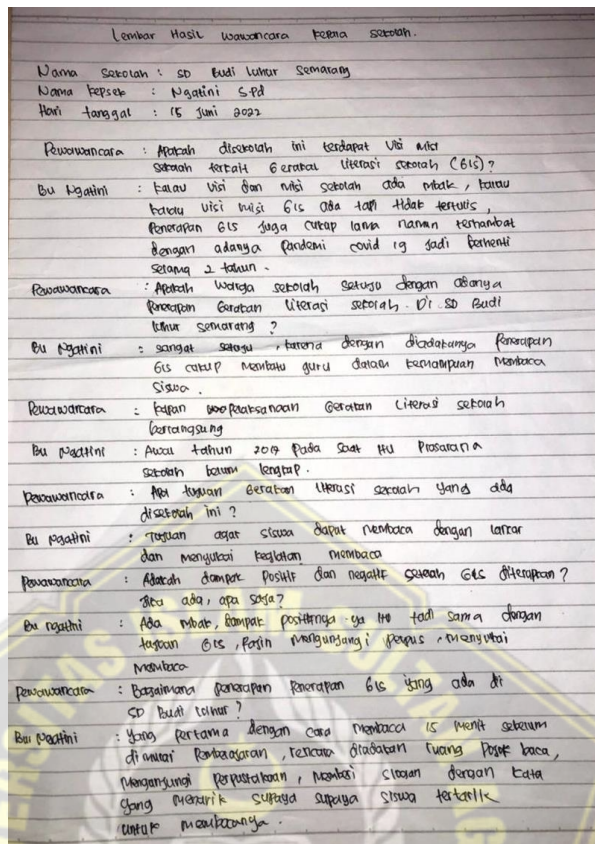 Lembar Hasil Wawancara Kepala Sekolah.
Nama Sekolah : SD Budi Luhur Semarang
Nama Kepsek : Ngatini S.Pd
Hari tanggal : 15 Juni 2022
Pewawancara : Apakah disekolah ini terdapat Visi Misi
Sekolah terkait Gerakal literasi sekolah (GLS)?
Bu Ngatini : Kalau visi dan misi sekolah ada mbak, kalau
kalau visi misi GLS ada tapi tidak tertulis,
Penerapan GLS Juga cukup lama namun terhambat
dengan adanya pandemi covid 19 jadi berhenti
selama 2 tahun.
Pewawancara : Apakah warga sekolah setuju dengan adanya
Penerapan Gerakan Literasi sekolah. Di SD Budi
luhur semarang ?
Bu Ngatini : sangat setuju, karena dengan diadakanya Penerapan
GLS cukup membatu guru dalam kemampuan Membaca
Siswa.
Pewawancara : Kapan pelaksanaan Gerakan Literasi sekolah
berlangsung
Bu Ngatini : Awal tahun 2017 Pada saat itu Prasarana
sekolah belum lengkap.
Pewawancara : Apa tujuan Gerakan literasi sekolah yang ada
disekolah ini ?
Bu Ngatini : Tujuan agar siswa dapat membaca dengan lancar
dan menyukai kegiatan membaca
Pewawancara : Adakah dampak Positif dan negatif setelah GLS diterapkan ?
Jika ada, apa saja?
Bu ngatini : Ada mbak, dampak positifnya ya itu tadi sama dengan
tujuan GLS, Rajin mengunjungi perpus, menyukai
Membaca
Pewawancara : Bagaimana penerapan Penerapan GLS yang ada di
SD Budi luhur ?
Bu Ngatini : Yang pertama dengan cara membaca 15 menit sebelum
dimulai Pembelajaran, rencana diadakan ruang Pojok baca,
Mengunjungi Perpustakaan, Memberi slogan dengan kata
yang menarik supaya supaya siswa tertarik
untuk membacanya.